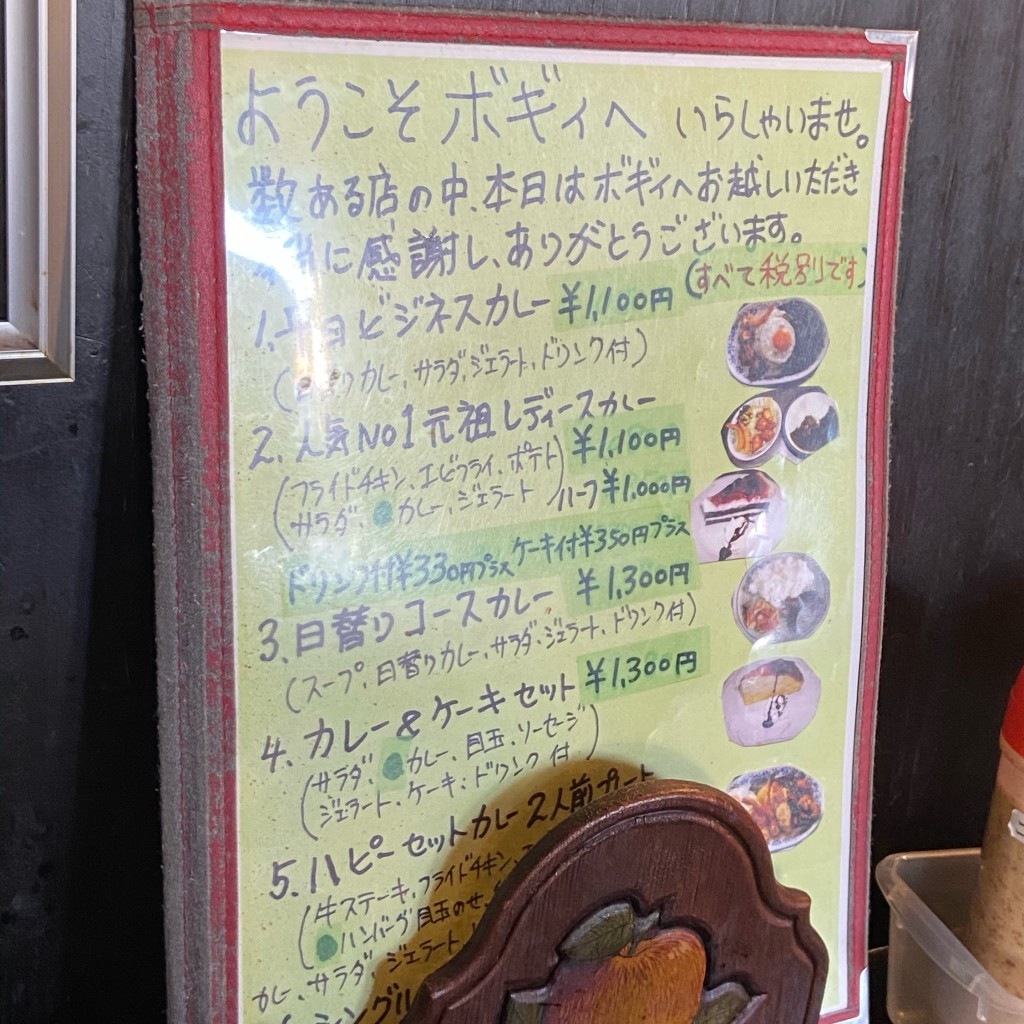 ようこそボギィへ いらしゃいませ。
数ある店の中、本日はボギィへお越しいただき
に感謝し、ありがとうございます。
(すべて税別です)
1.平日ビジネスカレー ¥1,100円
(日替りカレー、サラダ、ジェラート、ドリンク付)
2.人気No1元祖レディースカレー
¥1,100円
(フライドチキン、エビフライ、ポテト
サラダ、カレー、ジェラート) ハーフ¥1,000円
ドリンク付¥330円プラス ケーキ付¥350円プラス
3.日替りコースカレー ¥1,300円
(スープ、日替りカレー、サラダ、ジェラート、ドリンク付)
4.カレー&ケーキセット ¥1,300円
(サラダ、カレー、目玉、ソーセージ
ジェラート、ケーキ、ドリンク付)
5.ハピーセットカレー2人前
(牛ステーキ、フライドチキン、
ハンバーグ目玉のせ、
カレー、サラダ、ジェラート、
シングル